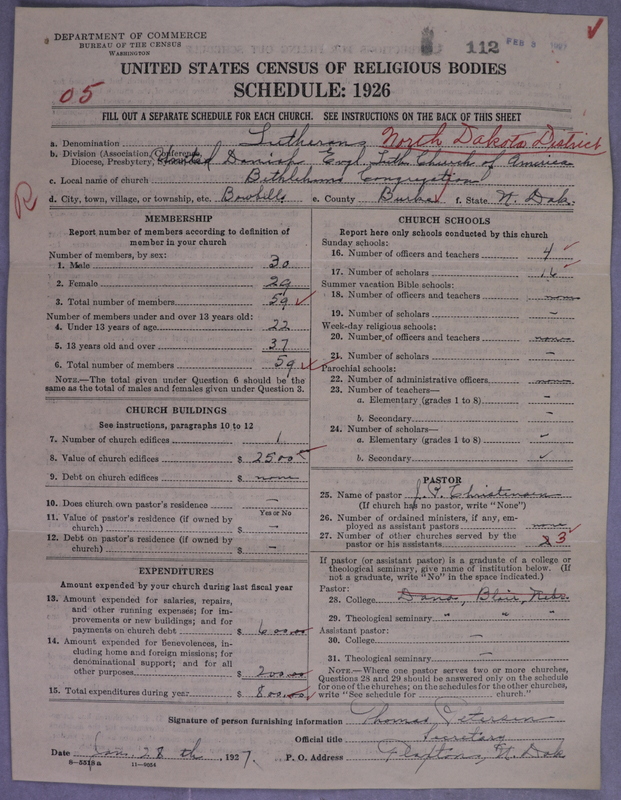 DEPARTMENT OF COMMERCE
BUREAU OF THE CENSUS
WASHINGTON
112 FEB 3 1927
UNITED STATES CENSUS OF RELIGIOUS BODIES
SCHEDULE: 1926
05
FILL OUT A SEPARATE SCHEDULE FOR EACH CHURCH. SEE INSTRUCTIONS ON THE BACK OF THIS SHEET
a. Denomination Lutheran North Dakota District
b. Division (Association, Conference, Diocese, Presbytery, United Danish Evgl. Luth. Church of America
c. Local name of church Bethlehems Congregation
d. City, town, village, or township, etc. Bowbells e. County Burke f. State N. Dak.
R
MEMBERSHIP
Report number of members according to definition of
member in your church
Number of members, by sex:
1. Male 30
2. Female 29
3. Total number of members 59
Number of members under and over 13 years old:
4. Under 13 years of age 22
5. 13 years old and over 37
6. Total number of members 59
NOTE.—The total given under Question 6 should be the
same as the total of males and females given under Question 3.
CHURCH BUILDINGS
See instructions, paragraphs 10 to 12
7. Number of church edifices 1
8. Value of church edifices $ 2500
9. Debt on church edifices $ none
10. Does church own pastor's residence —
Yes or No
11. Value of pastor's residence (if owned by
church) $ —
12. Debt on pastor's residence (if owned by
church) $ —
EXPENDITURES
Amount expended by your church during last fiscal year
13. Amount expended for salaries, repairs,
and other running expenses; for im-
provements or new buildings; and for
payments on church debt $ 600.00
14. Amount expended for benevolences, in-
cluding home and foreign missions; for
denominational support; and for all
other purposes $ 200.00
15. Total expenditures during year $ 800.00
CHURCH SCHOOLS
Report here only schools conducted by this church
Sunday schools:
16. Number of officers and teachers 4
17. Number of scholars 16
Summer vacation Bible schools:
18. Number of officers and teachers none
19. Number of scholars —
Week-day religious schools:
20. Number of officers and teachers none
21. Number of scholars —
Parochial schools:
22. Number of administrative officers none
23. Number of teachers—
a. Elementary (grades 1 to 8) —
b. Secondary —
24. Number of scholars—
a. Elementary (grades 1 to 8) —
b. Secondary
PASTOR
25. Name of pastor J. P. Christensen
(If church has no pastor, write "None")
26. Number of ordained ministers, if any, em-
ployed as assistant pastors none
27. Number of other churches served by the
pastor or his assistants 3
If pastor (or assistant pastor) is a graduate of a college or
theological seminary, give name of institution below. (If
not a graduate, write "No" in the space indicated.)
Pastor:
28. College Dana, Blair, Nebr.
29. Theological seminary " " "
Assistant pastor:
30. College —
31. Theological seminary —
NOTE.—Where one pastor serves two or more churches,
Questions 28 and 29 should be answered only on the schedule
for one of the churches; on the schedules for the other churches,
write "See schedule for ............ church."
Signature of person furnishing information Thomas Petersen
Official title Secretary
Date Jan. 28 th, 1927. P. O. Address Flaxton, N. Dak
8-5518a 11-9054